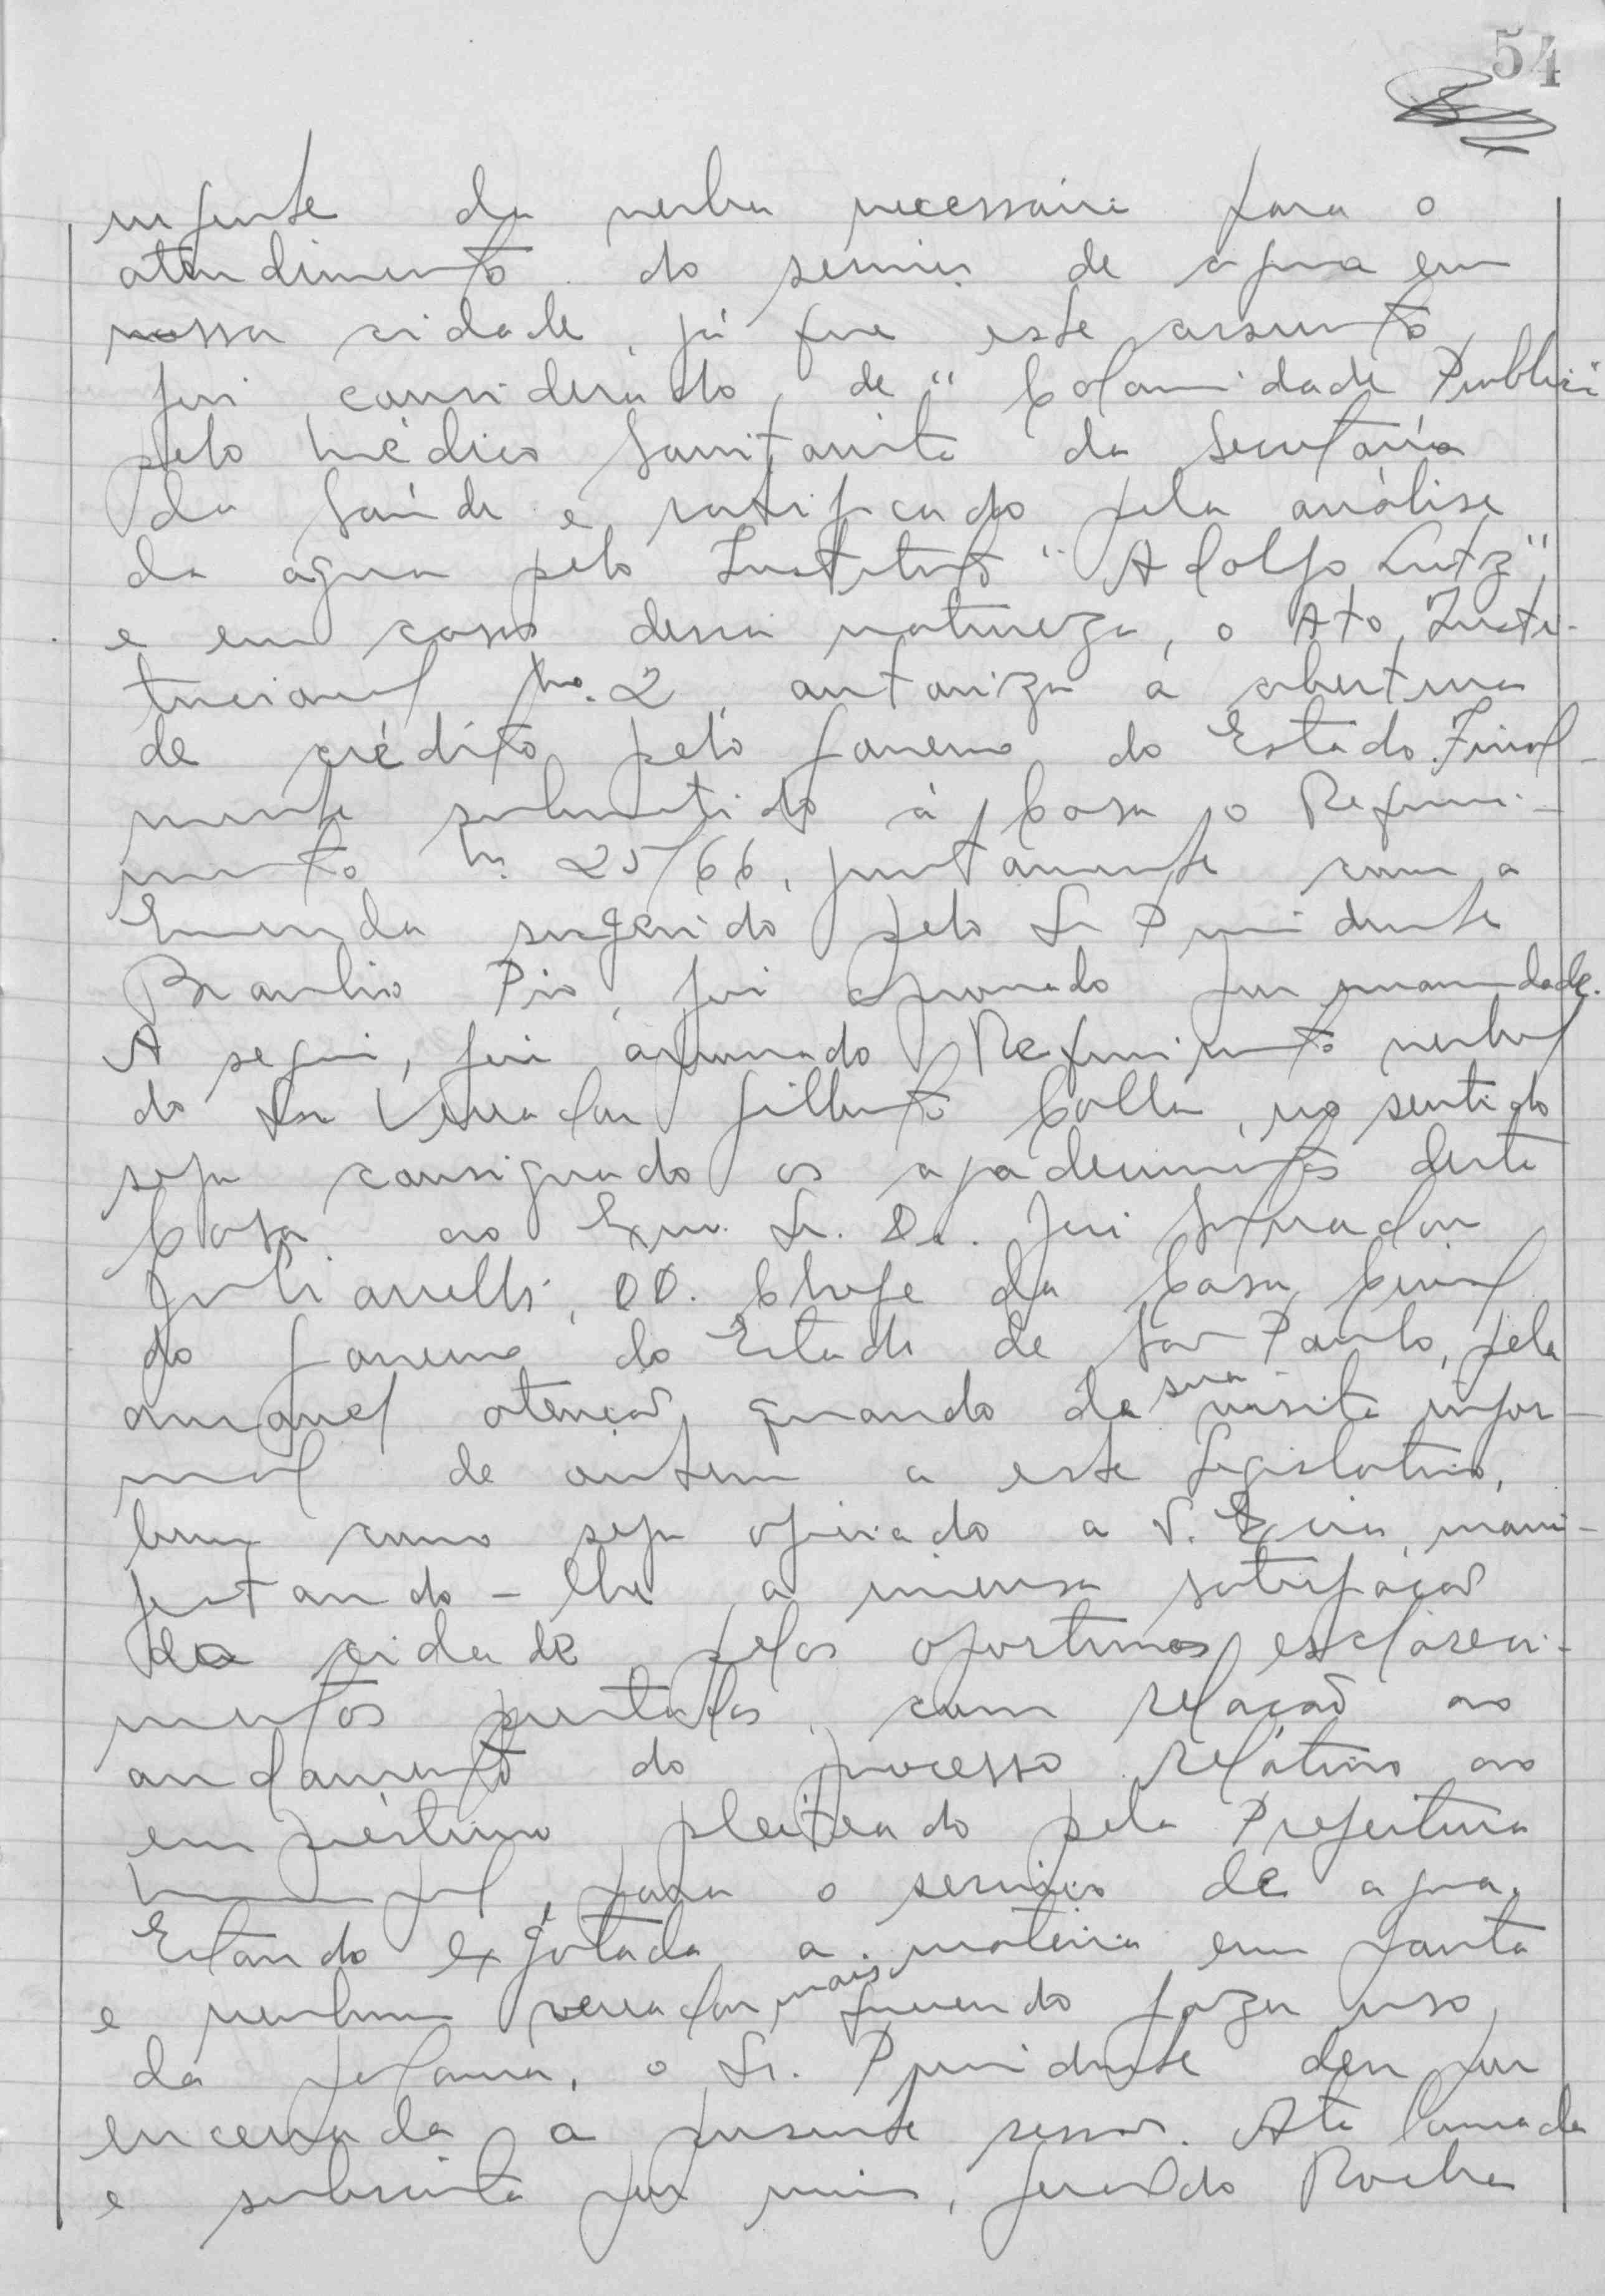 54
urgente da verba necessária para o
atendimento do serviço de agua em
nossa cidade, já que este assunto
foi considerado de "Calamidade Publica
pelo Médico Sanitarista da Secretária
da Saúde e ratificado pela análise
da agua pelo Instituto "Adolfo Lutz",
e em casos dessa natureza, o Ato Insti-
tucional No. 2, autoriza a abertura
de crédito pelo Governo do Estado. Final-
mente submetido á Casa o Requeri-
mento n. 25/66, juntamente com a
Emenda sugerido pelo Sr Presidente
Braulio Pio, foi aprovado por unanimidade.
A seguir, foi aprovado Requerimento verbal
do Snr Vereador Gilberto Colla, no sentido
seja consignado os agradecimentos desta
Casa ao Exmo. Sr. Dr. Juiz Salvador
Julianelli, DD. Chefe da Casa Civil
do Governo do Estado de São Paulo, pela
amavel atenção, quando da sua visita infor-
mal de ontem a este Legislativo,
bem como seja oficiado a S. Excia, mani-
festando-lhe a imensa satisfação
da cidade pelos oportunos esclareci-
mentos prestados, com relação ao
andamento do processo relativo ao
empréstimo pleiteado pela Prefeitura
Municipal, para o serviço de agua.
Estando exgotada a materia em pauta
e nenhum vereador mais querendo fazer uso
da palavra, o Sr. Presidente deu por
encerrada a presente sessão. Ata lavrada
e subscrita por mim, Geraldo Rocha